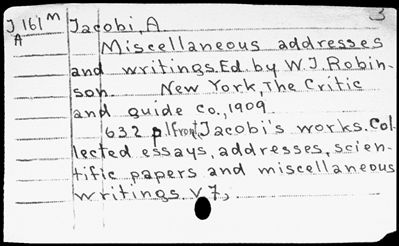 3
J 161 m Jacobi, A.
A
Miscellaneous addresses
and writings. Ed. by W. J. Robin-
son. New York, The Critic
and guide co., 1909
632 p (front, Jacobi's works. Col-
lected essays, addresses, scien-
tific papers and miscellaneous
writings v 7,